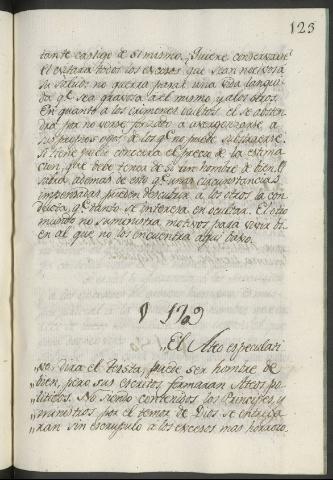 123
tante castigo de si mismo. Quiere conservarse
el evitara todos los excesos que sean nocivos a
su salud: no querra pasar una vida langui-
da qe. sea gravosa a el mismo y a los otros.
En quanto a los crimenes ocultos el se absten
dra por no verse forzado a avergonzarse a
sus propios ojos de los qe. no puede substraerse
Si tiene juicio conocera el precio de la estima
cion que debe tener de si un hombre de bien.
sabra ademas de esto qe. unas circunstancias
impensadas pueden descubrir a los otros la con
ducta qe. tanto se interesa en ocultar. El otro
mundo no suministra motivos para obrar bi-
en al que no los encuentra aqui baxo.
§ 179
„El Ateo especulati
„vo, dira el Teista, puede ser hombre de
„bien, pero sus escritos formaran Ateos po-
„liticos. No siendo contenidos los Principes, y
„ministros por el temor de Dios se entrega
„ran sin escrupulo a los excesos mas horroro.